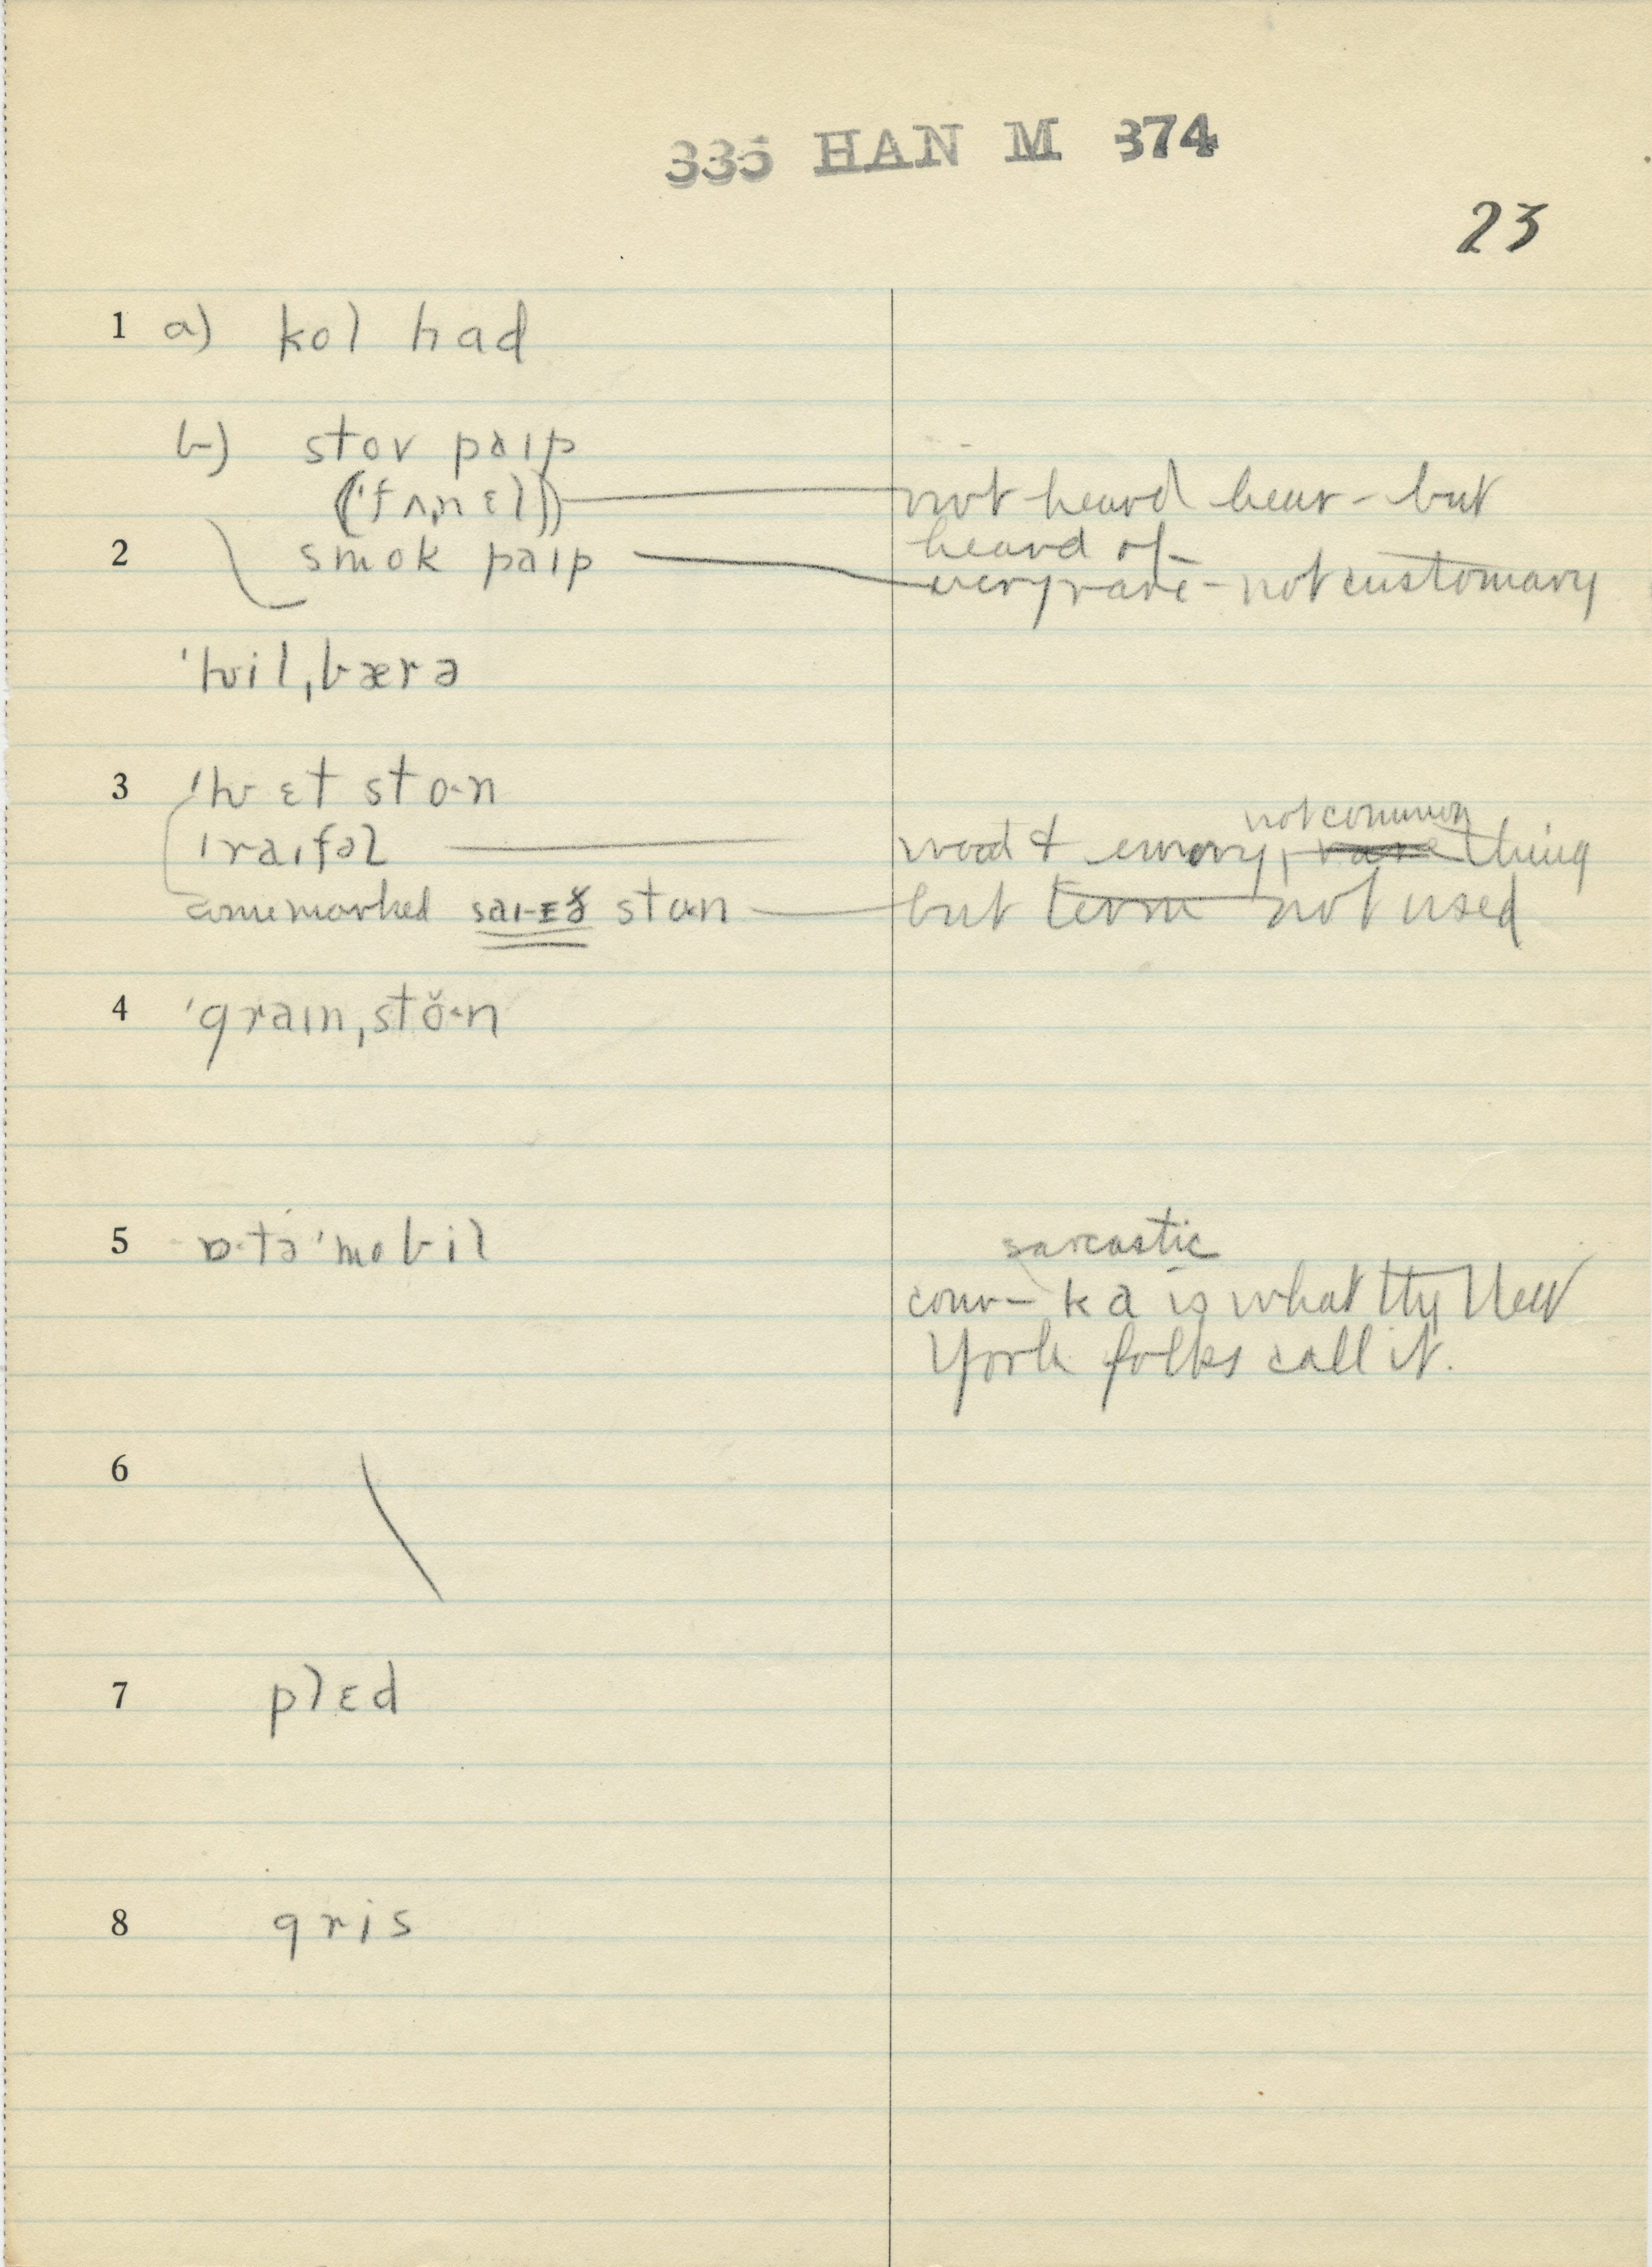 335 HAN M 374
23
1 a) kol had
b) stov paɪp
(ˈfʌˌnɛl) not heard hear - but
heard of
2 smok paɪp very rare - not customary
ˈhwilˌbærə
3 ˈhwɛt sto·n
ˈraɪfəl not common
wood & emory, rare thing
some marked stɑn but term not used
4 ˈgraɪnˌstŏ·n
5 ɒ·təˈmobil sarcastic
conv- ka is what the New
York folks call it.
6
7 plɛd
8 gris